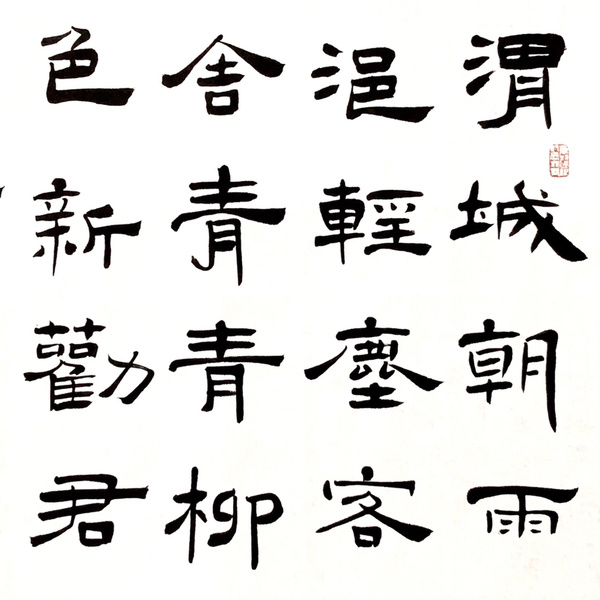 渭城朝雨
浥輕塵客
舍青青柳
色新勸君